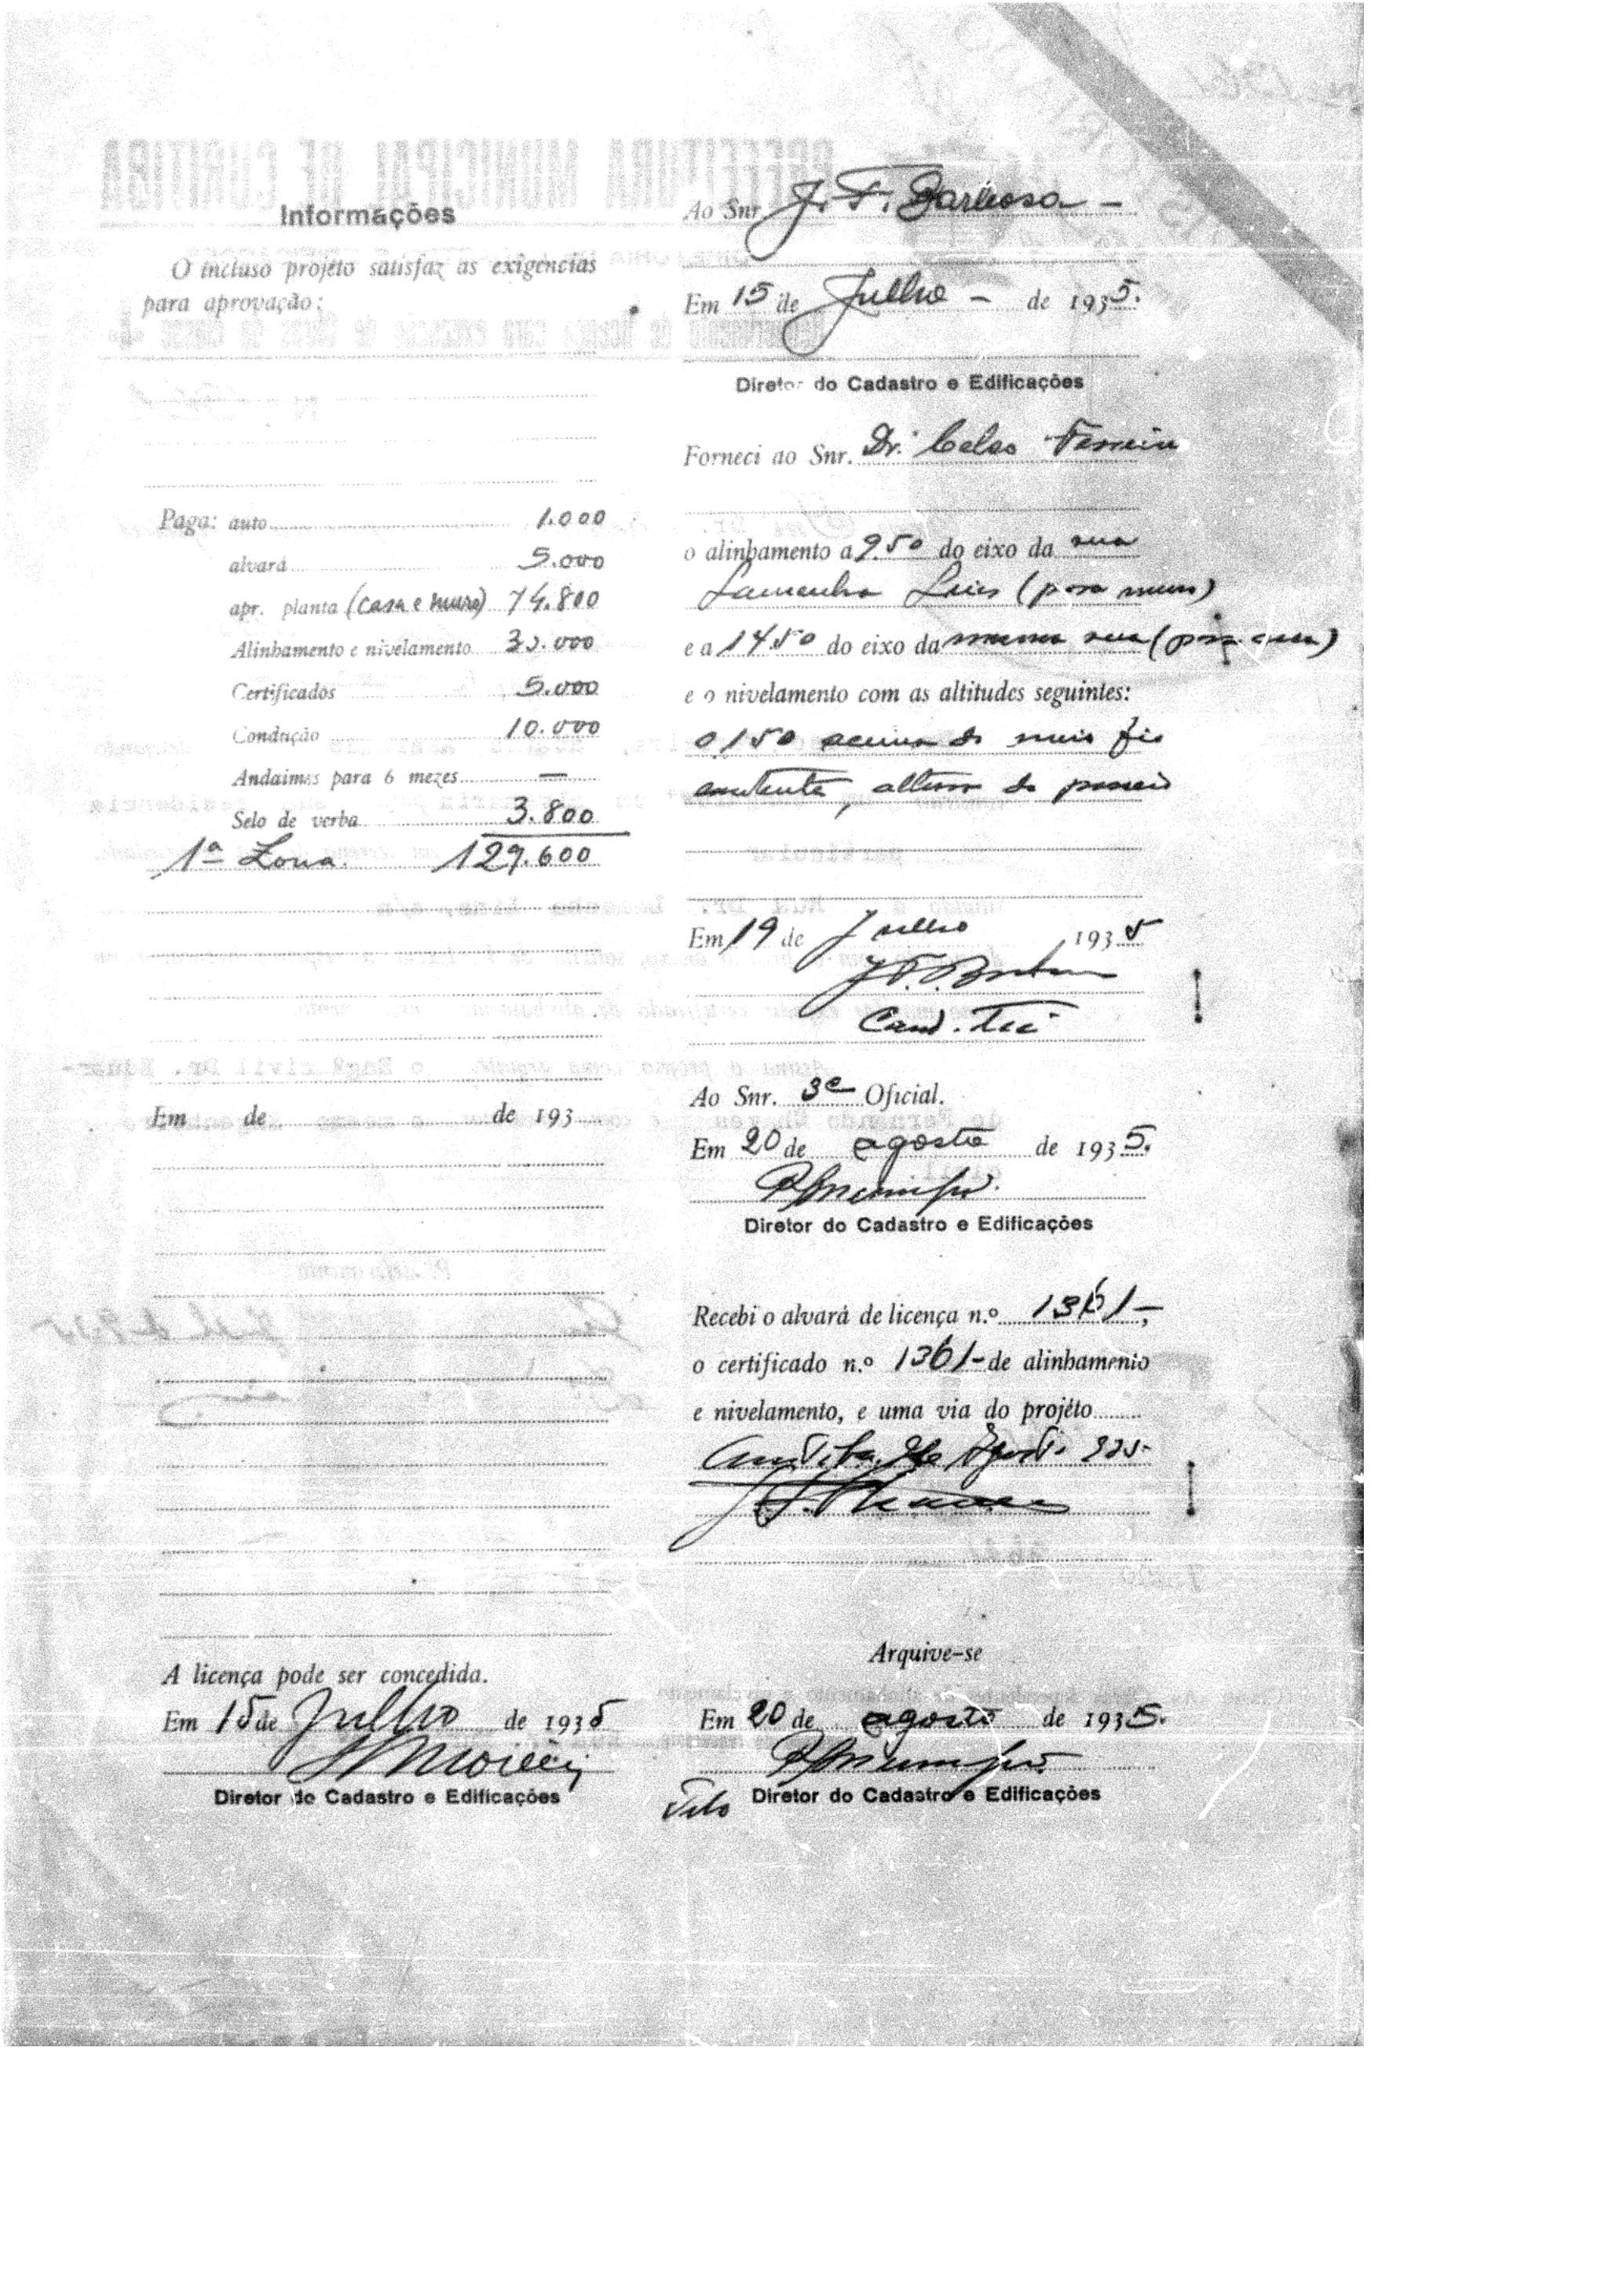 Informações
O incluso projéto satisfaz as exigencias
para aprovação:
Paga: auto 1.000
alvará 5.000
apr. planta (casa e muro) 74.800
Alinhamento e nivelamento 30.000
Certificados 5.000
Condução 10.000
Andaimes para 6 mezes —
Selo de verba 3.800
1ª Zona. 129.600
Em de de 193
A licença pode ser concedida.
Em 15 de Julho de 1935
Diretor do Cadastro e Edificações
Ao Snr. J. F. Barbosa —
Em 15 de Julho — de 1935.
Diretor do Cadastro e Edificações
Forneci ao Snr. Dr. Celso Ferreira
o alinhamento a 9.50 do eixo da rua
Lamenha Lins (para muro)
e a 14.50 do eixo da mesma rua (para casa)
e o nivelamento com as altitudes seguintes:
0,150 acima do meio fio
existente, altura do passeio
Em 19 de Julho 1935
Ao Snr. 3º Oficial.
Em 20 de agosto de 1935.
Diretor do Cadastro e Edificações
Recebi o alvará de licença n.º 1361-,
o certificado n.º 1361- de alinhamento
e nivelamento, e uma via do projéto
Arquive-se
Em 20 de agosto de 1935.
Diretor do Cadastro e Edificações